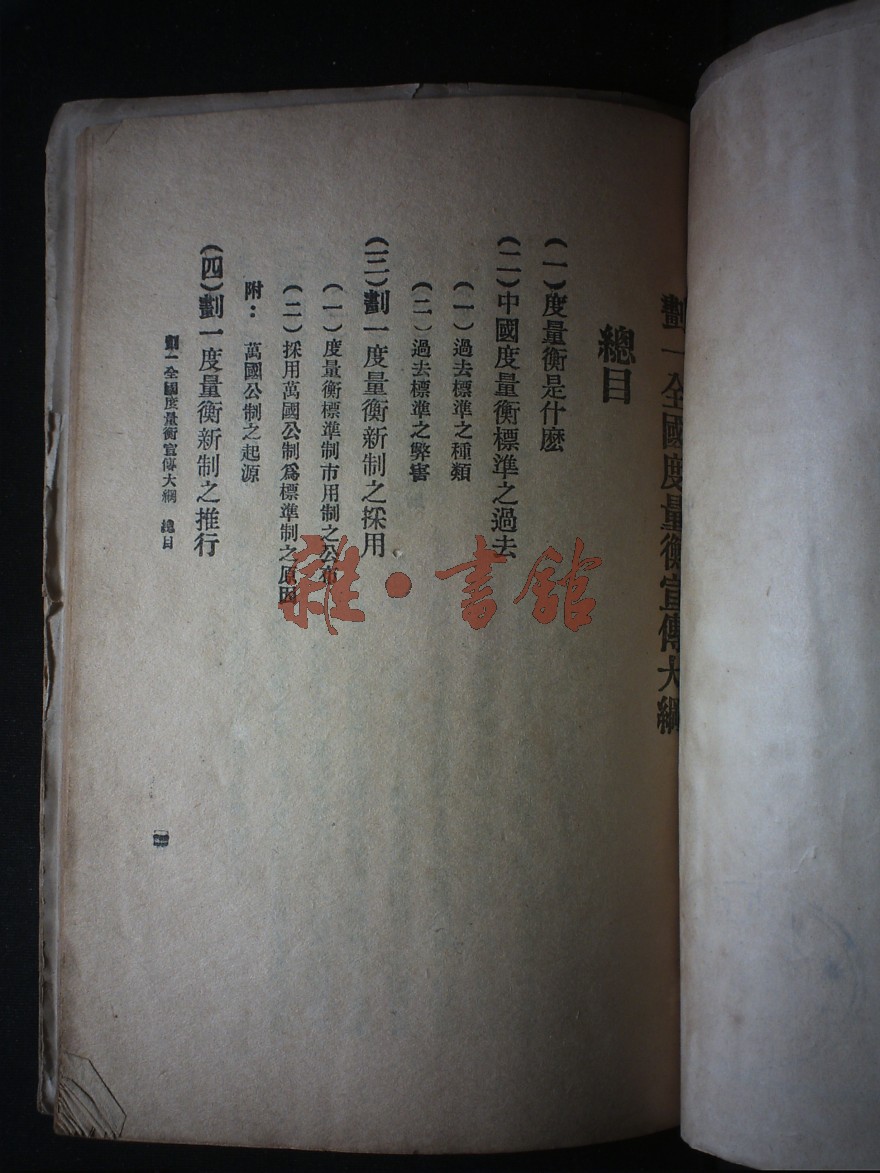 劃一全國度量衡宣傳大綱
總目
(一)度量衡是什麽
(二)中國度量衡標準之過去
(一)過去標準之種類
(二)過去標準之弊害
(三)劃一度量衡新制之採用
(一)度量衡標準制市用制之公布
(二)採用萬國公制爲標準制之原因
附：萬國公制之起源
(四)劃一度量衡新制之推行
劃一全國度量衡宣傳大綱 總目
雜·書館